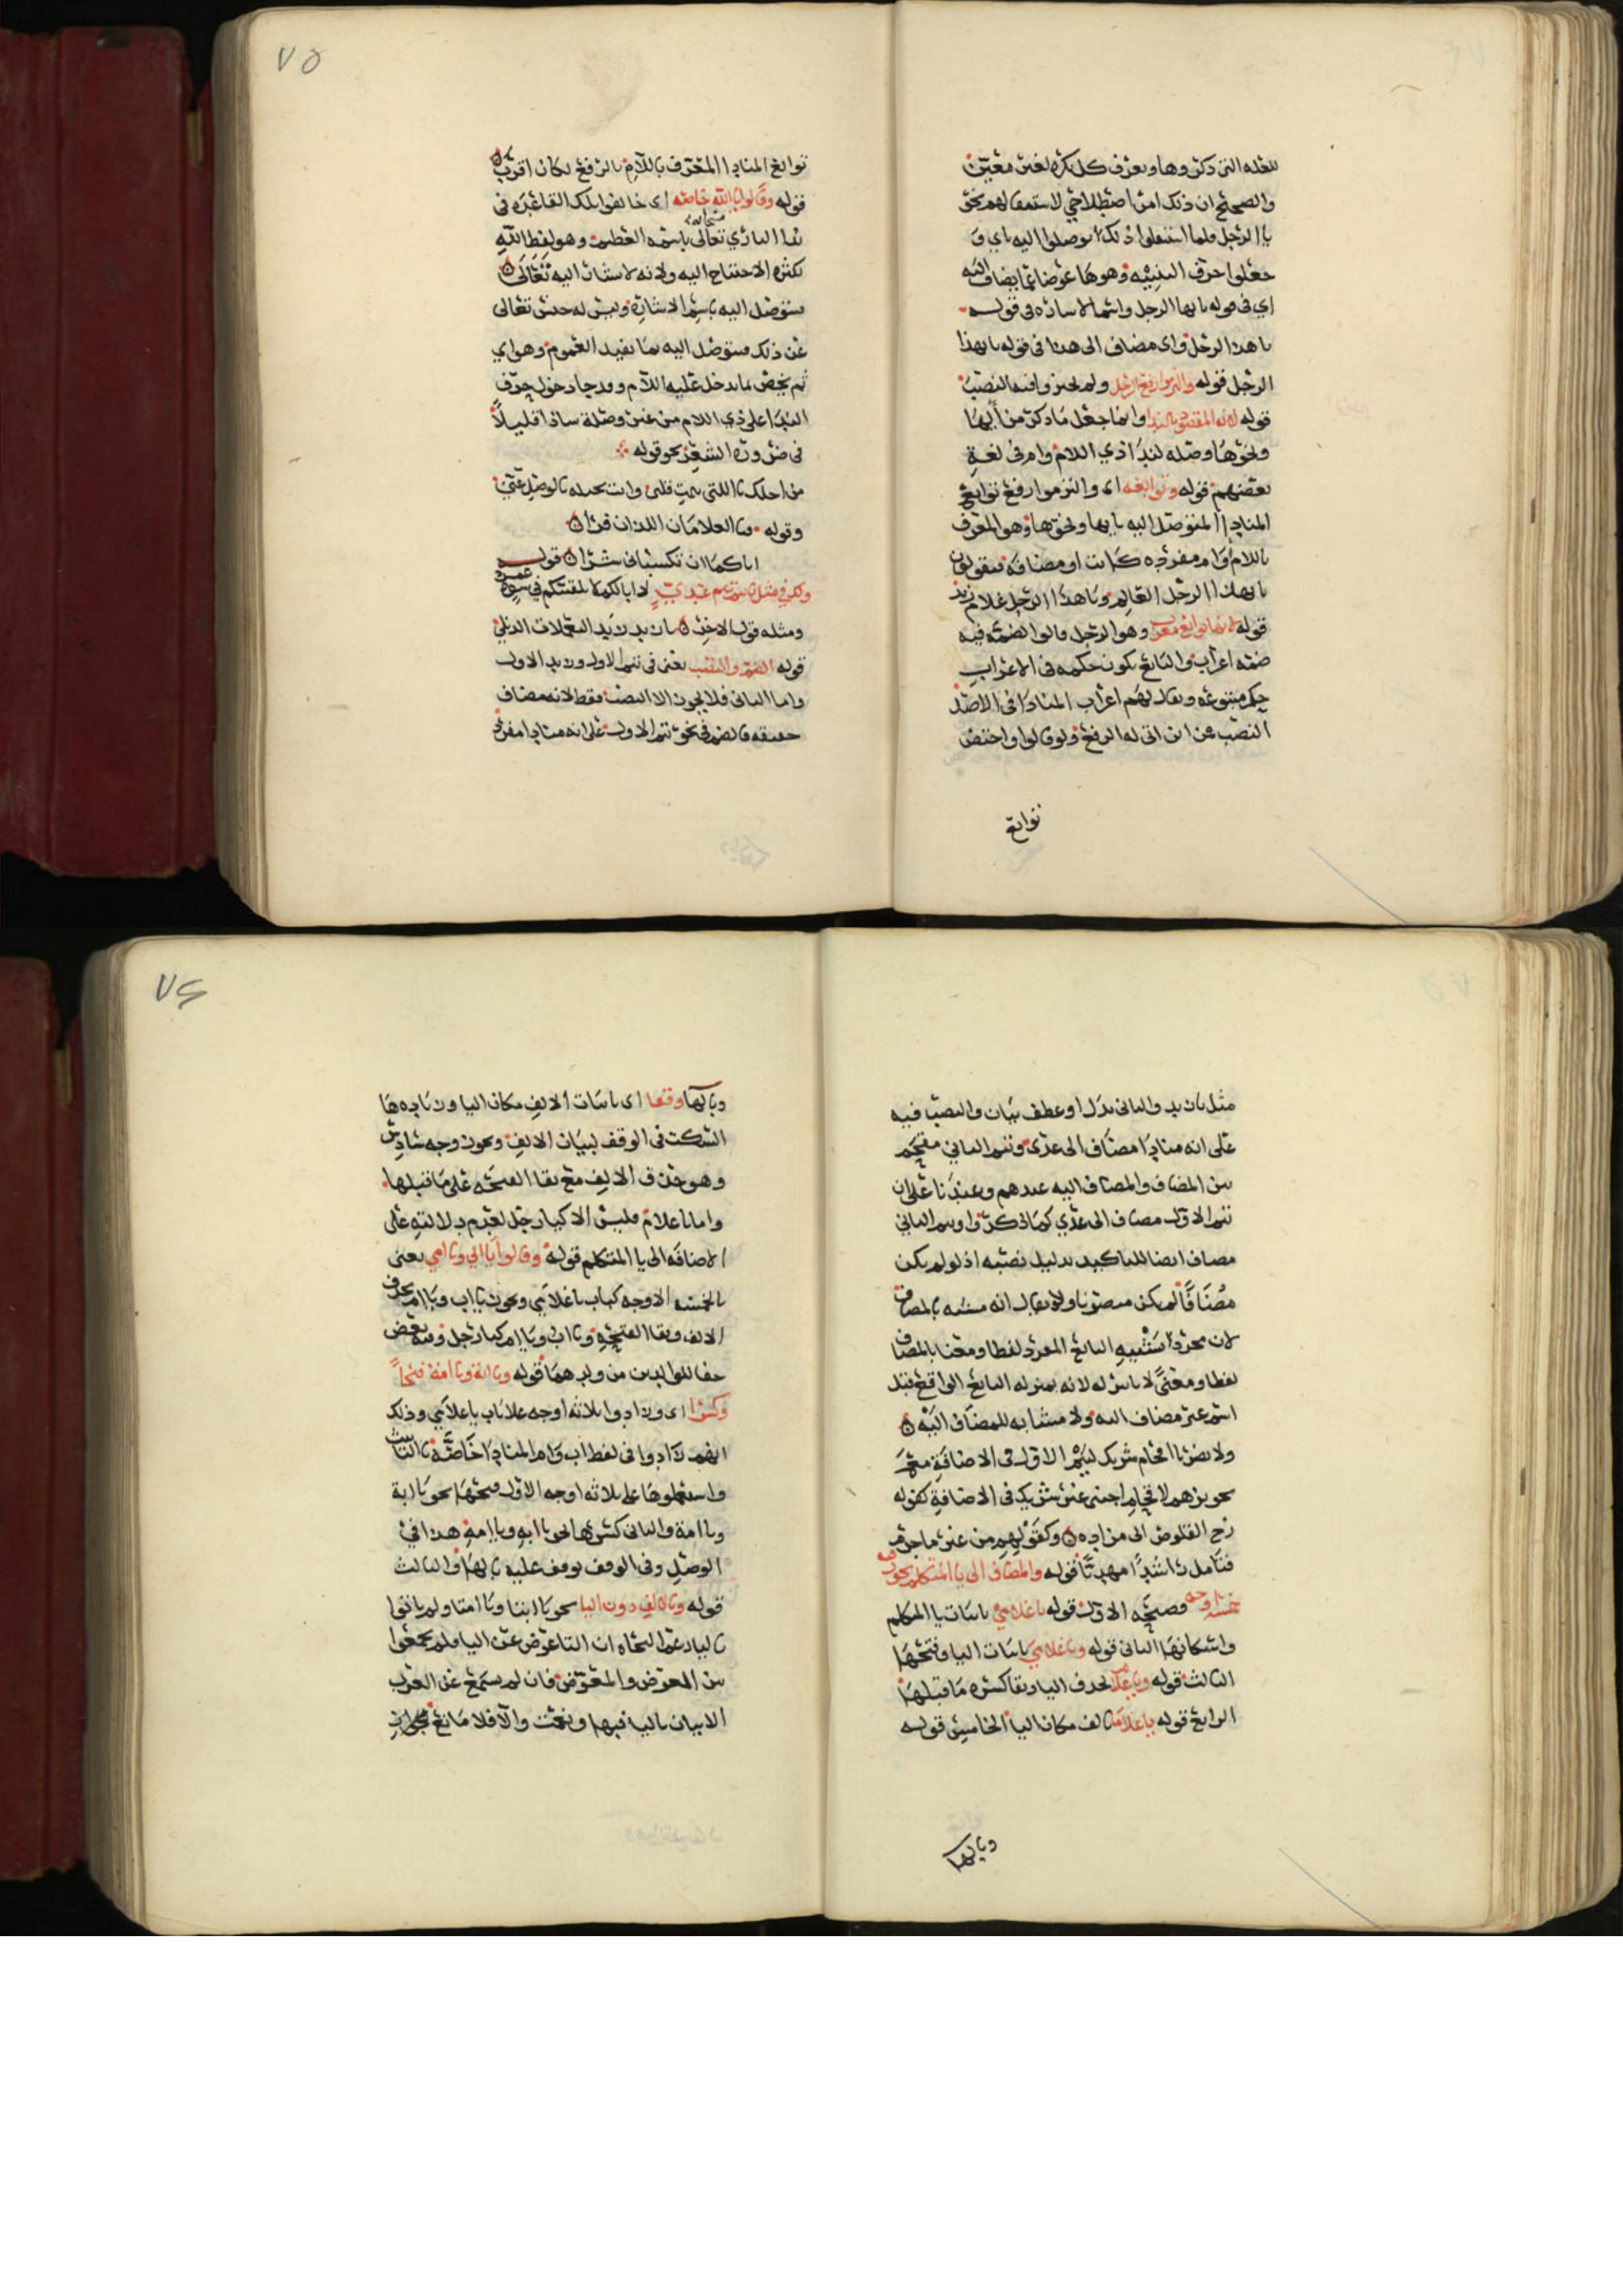 للعله التي ذكروها وتعرف كل نكرة لغير معين
والصحيح ان ذلك امر اصطلاحي لاستعمالهم نحو
يا الرجل فلما استثقلوا ذلك توصلوا اليه باي و
جعلوا حرف التنبيه وهو ها عوضا عما يضاف اليه
اي في قوله يا ايها الرجل واسم الاشاره في قوله
يا هذا الرجل واي مضاف الى هذا في قوله يا ايهذا
الرجل قوله والتزموا رفع الرجل ولم يجيزوا فيه النصب
قوله لانه المقصود بالندا وانما جعل ما ذكر من ايها
ونحوها وصله لندا ذي اللام وام في لغة
بعضهم قوله وتوابعه اي والتزموا رفع توابع
المنادا المتوصل اليه بايها ونحوها وهو المعرف
باللام وام مفرده كانت او مضافه فيقولون
يا ايهذا الرجل العالم ويا هذا الرجل غلام زيد
قوله لانها توابع معرب وهو الرجل قالوا لضمه فيه
ضمه اعراب والتابع يكون حكمه في الاعراب
حكم متبوعه ويقال لهم اعراب المنادا في الاصل
النصب من اين اتى له الرفع ولو قالوا واختص
توابع
٧٥
توابع المنادا المعرف باللام بالرفع لكان اقرب
قوله وقالوا يا الله خاصه اي خالفوا تلك القاعده في
ندا الباري سبحانه تعالى باسمه العظيم وهو لفظ الله
لكثره الاحتياج اليه ولانه لا يشار اليه تعالى
فيتوصل اليه باسم الاشاره وليس له جنس تعالى
عن ذلك فيتوصل اليه بما يفيد العموم وهو اي
ثم يخص بما يدخل عليه اللام وقد جا دخول حرف
الندا على ذي اللام من غير وصلة شاذا قليلا
في ضرورة الشعر نحو قوله
من اجلك يا اللتي تيمت قلبي وانت بخيله بالوصل عني
وقوله فيا الغلامان اللذان فرا
اياكما ان تكسباني شرا قوله
ولك في مثل يا تيم تيم عدي لا ابا لكم لا يلقينكم في سوءة عمر
ومثله قول الاخر يا زيد زيد اليعملات الذبل
قوله الضم والنصب يعني في تيم الاول وزيد الاول
واما الثاني فلا يجوز الا النصب فقط لانه مضاف
حقيقه فالضم في نحو تيم الاول على انه منادا مفرد
مثل يا زيد والثاني بدل او عطف بيان والنصب فيه
على انه منادا مضاف الى عدي وتيم الثاني مقحم
بين المضاف والمضاف اليه عندهم وعندنا على ان
تيم الاول مضاف الى عدي كما ذكروا وتيم الثاني
مضاف ايضا للتاكيد بدليل نصبه اذ لو لم يكن
مضافا لم يكن منصوبا ولا يقال انه مشبه بالمضاف
لان مجرد تشبيه التابع المفرد لفظا ومعنا بالمضاف
لفظا ومعنى لا تاثير له لانه بمنزله التابع الواقع قبل
اسم غير مضاف اليه ولا مشابه للمضاف اليه
ولا يضرنا اقحام شريك لتيم الاول في الاضافة مع
تجويزهم لاقحام اجنبي غير شريك في الاضافة كقوله
زج القلوص ابي مزاده وكقولهم من غير ما جرم
فتامل راشدا مهديا قوله والمضاف الى يا المتكلم يجوز فيه
خمسه اوجه فصيحه الاول قوله يا غلامي باثبات يا المتكلم
واسكانها الثاني قوله ويا غلامي باثبات اليا وفتحها
الثالث قوله ويا غلام بحذف اليا وبقا كسره ما قبلها
الرابع قوله يا غلاما بالف مكان اليا الخامس قوله
وبالها
٧٦
وبالها وقفا اي باثبات الالف مكان اليا وزياده ها
السكت في الوقف لبيان الالف ويجوز وجه سادس
وهو حذف الالف مع بقا الفتحه على ما قبلها
واما يا غلام فليس الا كيا رجل لعدم دلالته على
الاضافه الى يا المتكلم قوله وقالوا يا ابي ويا امي يعني
بالخمسه الاوجه كباب يا غلامي ويجوز يا اب ويا ام بحذف
الالف وبقا الفتحه ويا اب ويا ام كيا رجل وفيه بعض
جفا للوالدين من ولدهما قوله ويا ابت ويا امت فتحا
وكسرا اي وزادوا ثلاثه اوجه على باب يا غلامي وذلك
انهم زادوا في لفظ اب وام المنادا خاصه تا التانيث
واستعملوها على ثلاثه اوجه الاول فتحها نحو يا ابة
ويا امة والثاني كسرها نحو يا ابة ويا امة هذا في
الوصل وفي الوقف يوقف عليه بالها والثالث
قوله وبالالف دون اليا نحو يا ابتا ويا امتا ولم ياتوا
باليا زعم النحاه ان التا عوض عن اليا فلم يجمعوا
بين العوض والمعوض فان لم يسمع عن العرب
الاتيان باليا فيهما ونعمت والا فلا مانع